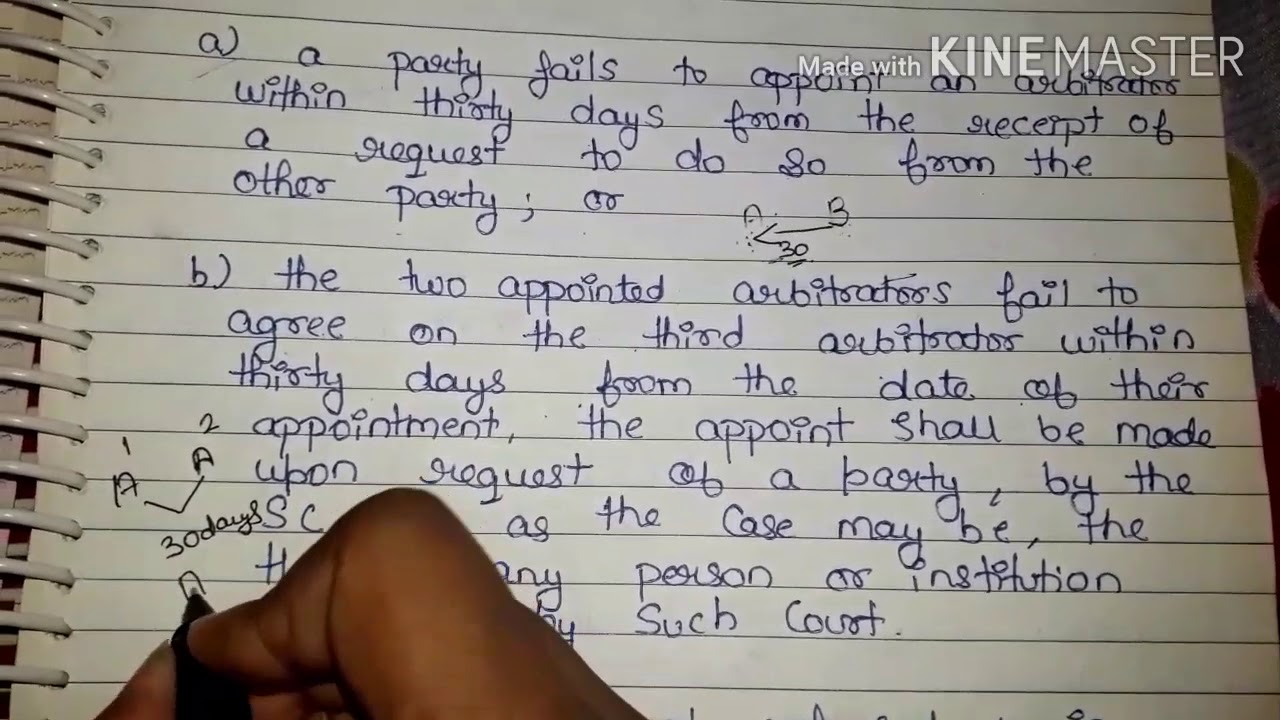 Made with KINEMASTER
a) a party fails to appoint an arbitrator
within thirty days from the receipt of
a request to do so from the
other party; or
A B
30
b) the two appointed arbitrators fail to
agree on the third arbitrator within
thirty days from the date of their
appointment, the appoint shall be made
1 2
A A
upon request of a party, by the
30days
SC as the case may be, the
A
any person or institution
by such Court.